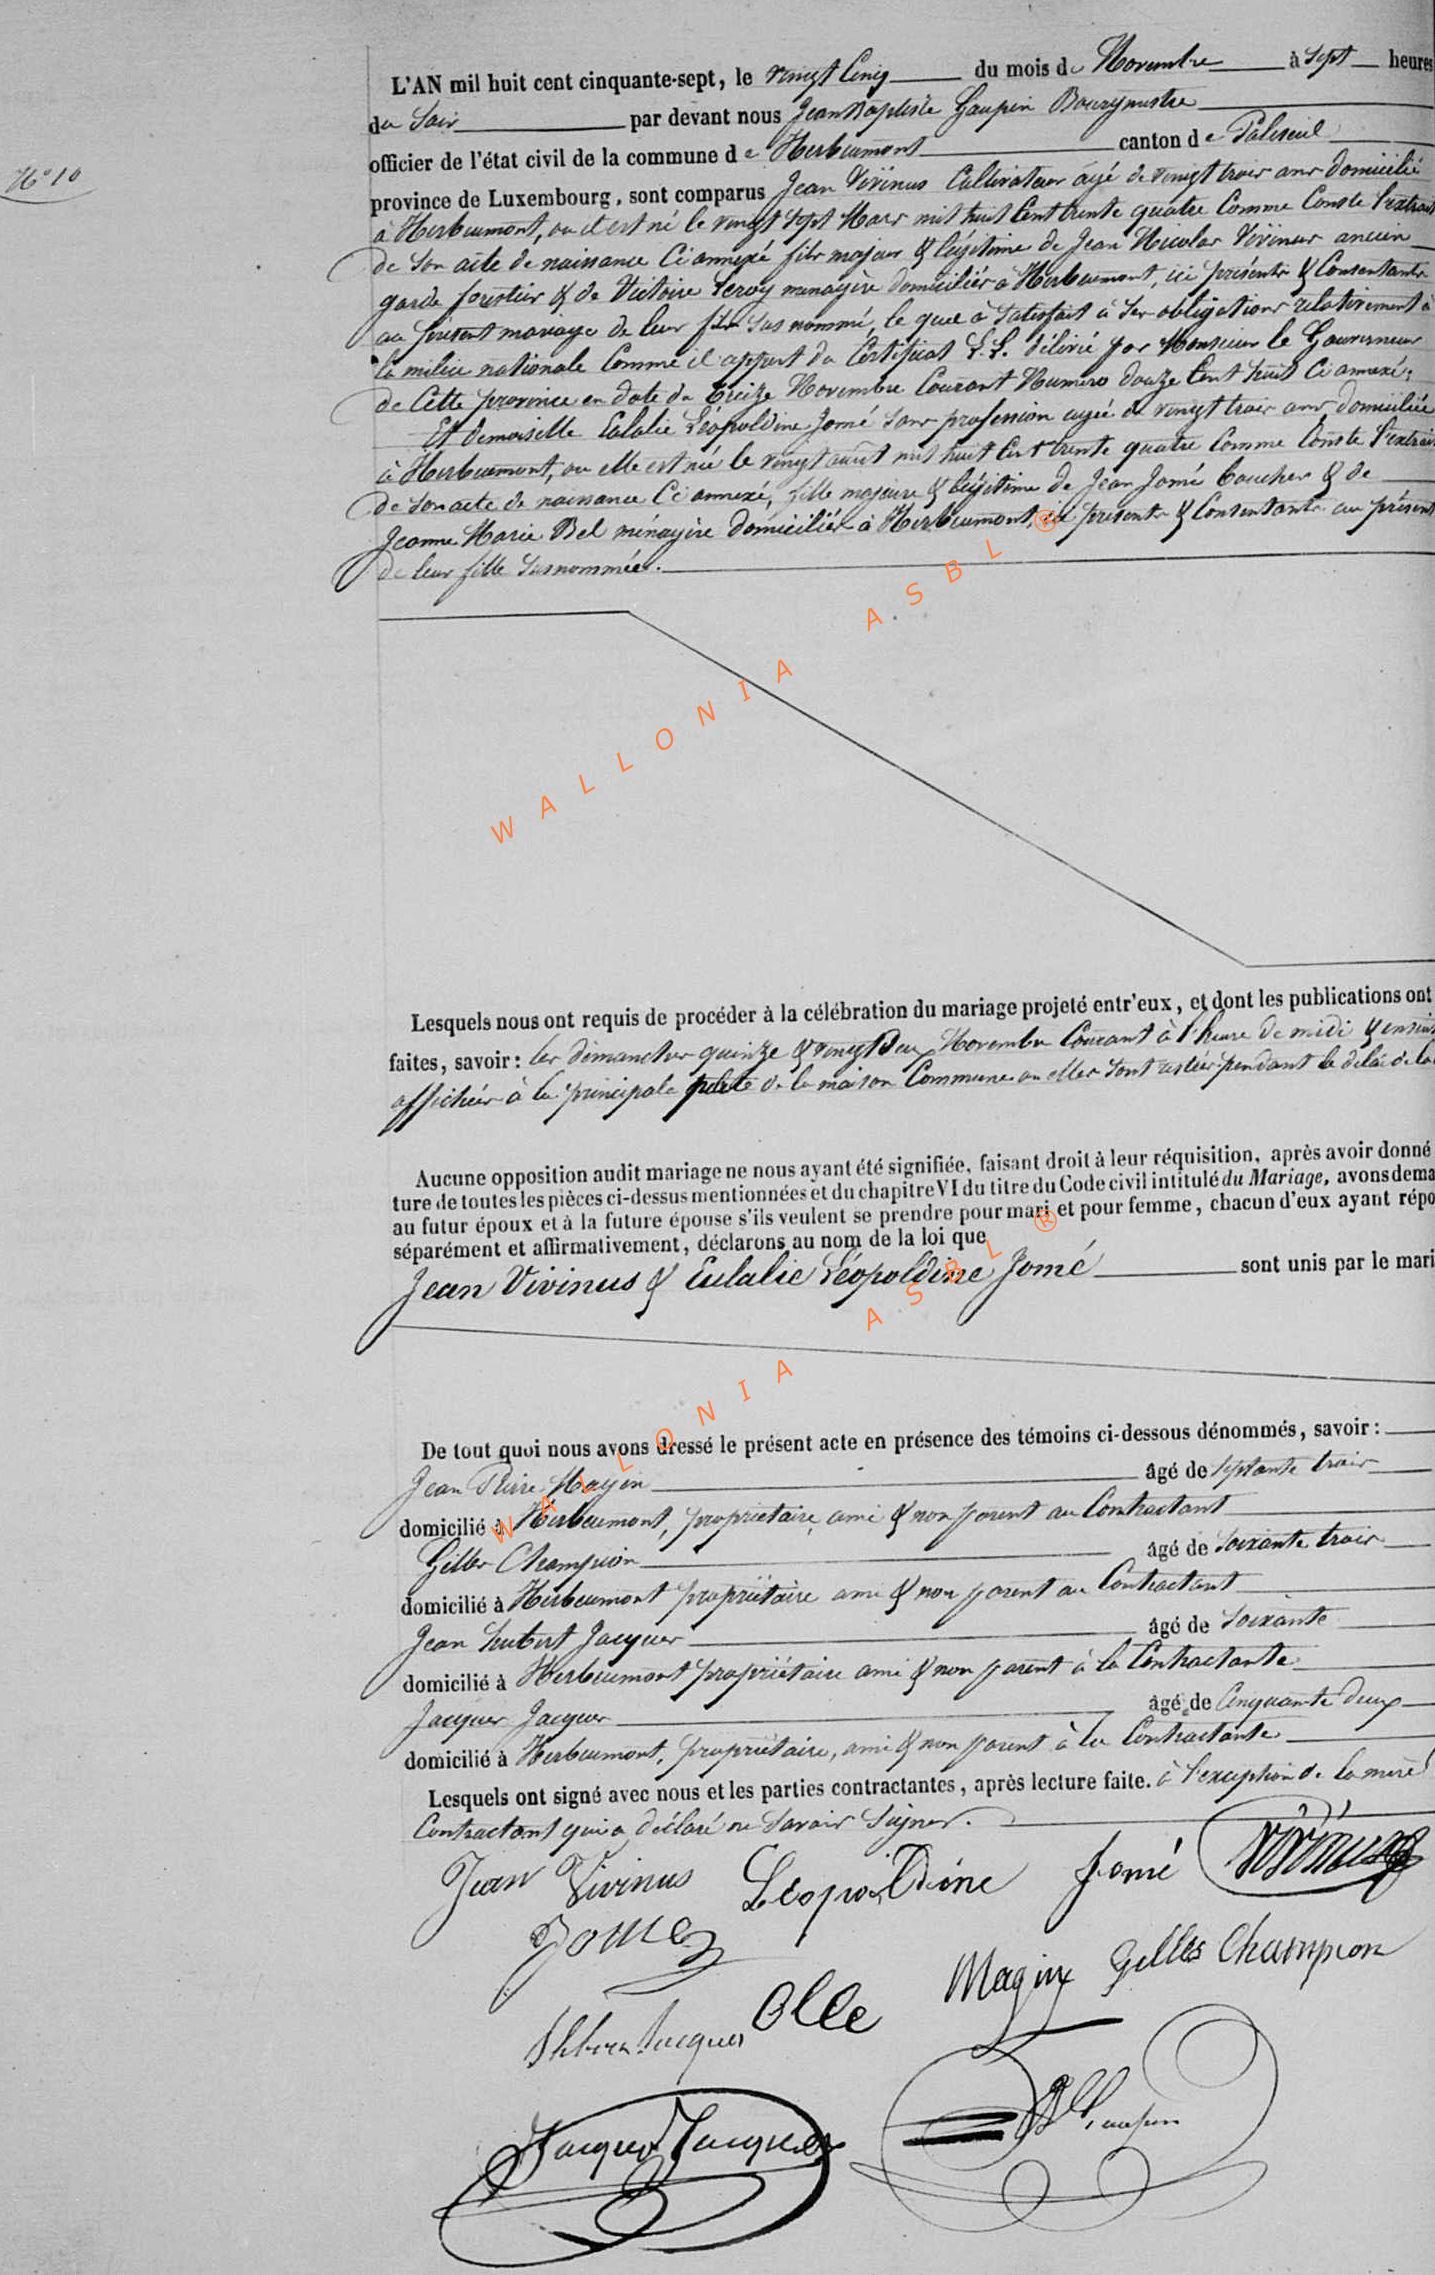 N° 10
L'AN mil huit cent cinquante-sept, le vingt Cinq du mois de Novembre à Sept heures
du Soir par devant nous Jean Baptiste Gaupin Bourgmestre
officier de l'état civil de la commune de Herbeumont canton de Paliseul
province de Luxembourg, sont comparus Jean Vivinus Cultivateur âgé de vingt trois ans domicilié
à Herbeumont, ou il est né le vingt Sept Mars mil huit Cent trente quatre Comme Conste l'extrait
de Son acte de naissance Ci annexé fils majeur & légitime de Jean Nicolas Vivinus ancien
garde forestier & de Victoire Leroy menagère domiciliés à Herbeumont, ici présents & Consentants
au présent mariage de leur fils Sus nommé, le quel à Satisfait à Ses obligations relativement à
la milice nationale Comme il appert du Certificat L.L. délivré par Monsieur le Gouverneur
de Cette province en date du treize Novembre Courant Numero douze Cent huit Ci annexé;
Et Demoiselle Eulalie Léopoldine Jomé Sans profession agée de vingt trois ans domiciliée
à Herbeumont, ou elle est née le vingt août mil huit Cent trente quatre Comme Conste l'extrait
de Son acte de naissance Ci annexé, fille majeure & légitime de Jean Jomé boucher & de
Jeanne Marie Bel ménagère domiciliés à Herbeumont, ici présents & Consentants au présent
de leur fille Susnommée.
WALLONIA ASBL ®
Lesquels nous ont requis de procéder à la célébration du mariage projeté entr'eux, et dont les publications ont
faites, savoir: les dimanches quinze & vingt Deux Novembre Courant à l'heure de midi &
affichées à la principale porte de la maison Commune ou elles Sont restées pendant le délai de la
Aucune opposition audit mariage ne nous ayant été signifiée, faisant droit à leur réquisition, après avoir donné
ture de toutes les pièces ci-dessus mentionnées et du chapitre VI du titre du Code civil intitulé du Mariage, avons dema
au futur époux et à la future épouse s'ils veulent se prendre pour mari et pour femme, chacun d'eux ayant répo
séparément et affirmativement, déclarons au nom de la loi que
Jean Vivinus & Eulalie Léopoldine Jomé sont unis par le mari
WALLONIA ASBL ®
De tout quoi nous avons dressé le présent acte en présence des témoins ci-dessous dénommés, savoir:
Jean Pierre Magin âgé de septante trois
domicilié à Herbeumont, propriétaire, ami & non parent au Contractant
Gilles Champion âgé de Soixante trois
domicilié à Herbeumont propriétaire ami & non parent au Contractant
Jean hubert Jacques âgé de Soixante
domicilié à Herbeumont propriétaire ami & non parent à la Contractante
Jacques Jacques âgé de Cinquante deux
domicilié à Herbeumont, propriétaire, ami & non parent à la Contractante
Lesquels ont signé avec nous et les parties contractantes, après lecture faite. à l'exception de la mère
Contractant qui a déclaré ne Savoir Signer.
Jean Vivinus Léopoldine Jomé Vivinus
Jomé
Magin Gilles Champion
Jacques
Jacques Jacques
Gaupin